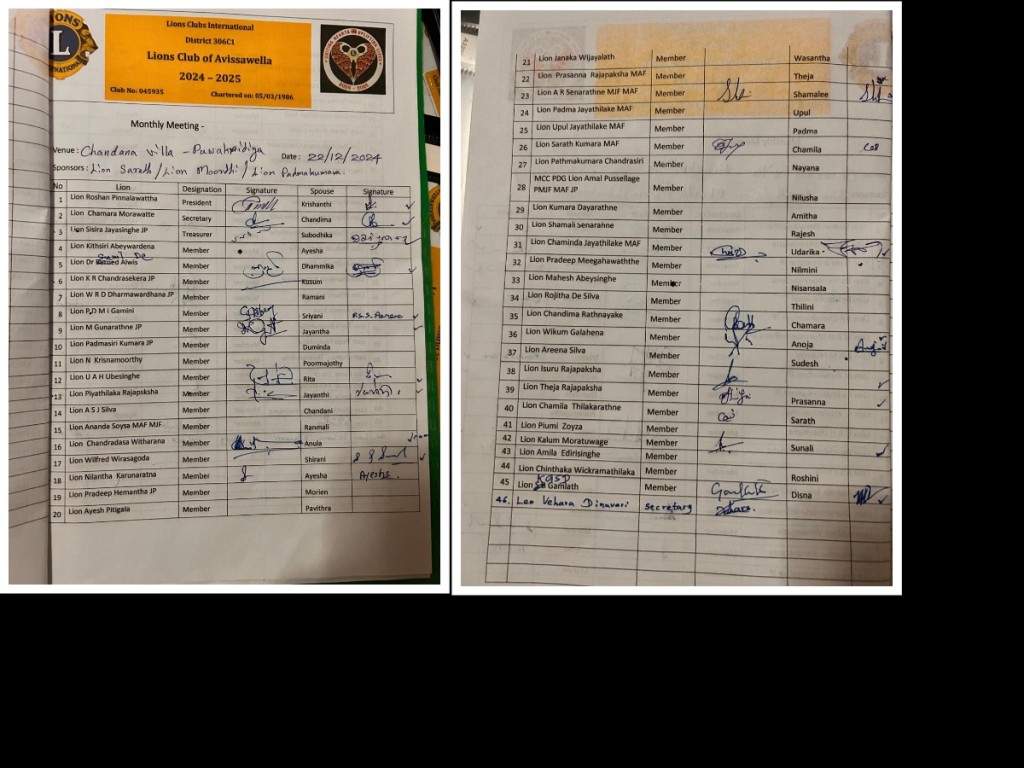 Lions Clubs International
District 306C1
Lions Club of Avissawella
2024 – 2025
Club No: 045935 Chartered on: 05/03/1986
Monthly Meeting -
Venue: Chandana Villa - Puwakpidiya Date: 22/12/2024
Sponsors: Lion Sarath / Lion Moorthi / Lion Padmakumara
No Lion Designation Signature Spouse Signature
1 Lion Roshan Pinnalawattha President Krishanthi
2 Lion Chamara Morawatte Secretary Chandima
3 Lion Sisira Jayasinghe JP Treasurer Subodhika
4 Lion Kithsiri Abeywardena Member Ayesha
5 Lion Dr Alwis Member Dhammika
6 Lion K R Chandrasekera JP Member Kusum
7 Lion W R D Dharmawardhana JP Member Ramani
8 Lion P.D M I Gamini Member Sriyani
9 Lion M Gunarathne JP Member Jayantha
10 Lion Padmasiri Kumara JP Member Duminda
11 Lion N Krisnamoorthy Member Poormajothy
12 Lion U A H Ubesinghe Member Rita
13 Lion Piyathilaka Rajapsksha Member Jayanthi
14 Lion A S J Silva Member Chandani
15 Lion Ananda Soysa MAF MJF Member Ranmali
16 Lion Chandradasa Witharana Member Anula
17 Lion Wilfred Wirasagoda Member Shirani
18 Lion Nilantha Karunaratna Member Ayesha Ayesha.
19 Lion Pradeep Hemantha JP Member Morien
20 Lion Ayesh Pitigala Member Pavithra
21 Lion Janaka Wijayalath Member Wasantha
22 Lion Prasanna Rajapaksha MAF Member Theja
23 Lion A R Senarathne MJF MAF Member Shamalee
24 Lion Padma Jayathilake MAF Member Upul
25 Lion Upul Jayathilake MAF Member Padma
26 Lion Sarath Kumara MAF Member Chamila
27 Lion Pathmakumara Chandrasiri Member Nayana
28 MCC PDG Lion Amal Pussellage PMJF MAF JP Member Nilusha
29 Lion Kumara Dayarathne Member Amitha
30 Lion Shamali Senarahne Member Rajesh
31 Lion Chaminda Jayathilake MAF Member Udarika
32 Lion Pradeep Meegahawaththe Member Nilmini
33 Lion Mahesh Abeysinghe Member Nisansala
34 Lion Rojitha De Silva Member Thilini
35 Lion Chandima Rathnayake Member Chamara
36 Lion Wikum Galahena Member Anoja
37 Lion Areena Silva Member Sudesh
38 Lion Isuru Rajapaksha Member
39 Lion Theja Rajapaksha Member Prasanna
40 Lion Chamila Thilakarathne Member Sarath
41 Lion Piumi Zoyza Member
42 Lion Kalum Moratuwage Member Sunali
43 Lion Amila Edirisinghe Member
44 Lion Chinthaka Wickramathilaka Member Roshini
45 Lion KGSD Gamlath Member Disna
46. Leo Vehara Dinuvari secretary